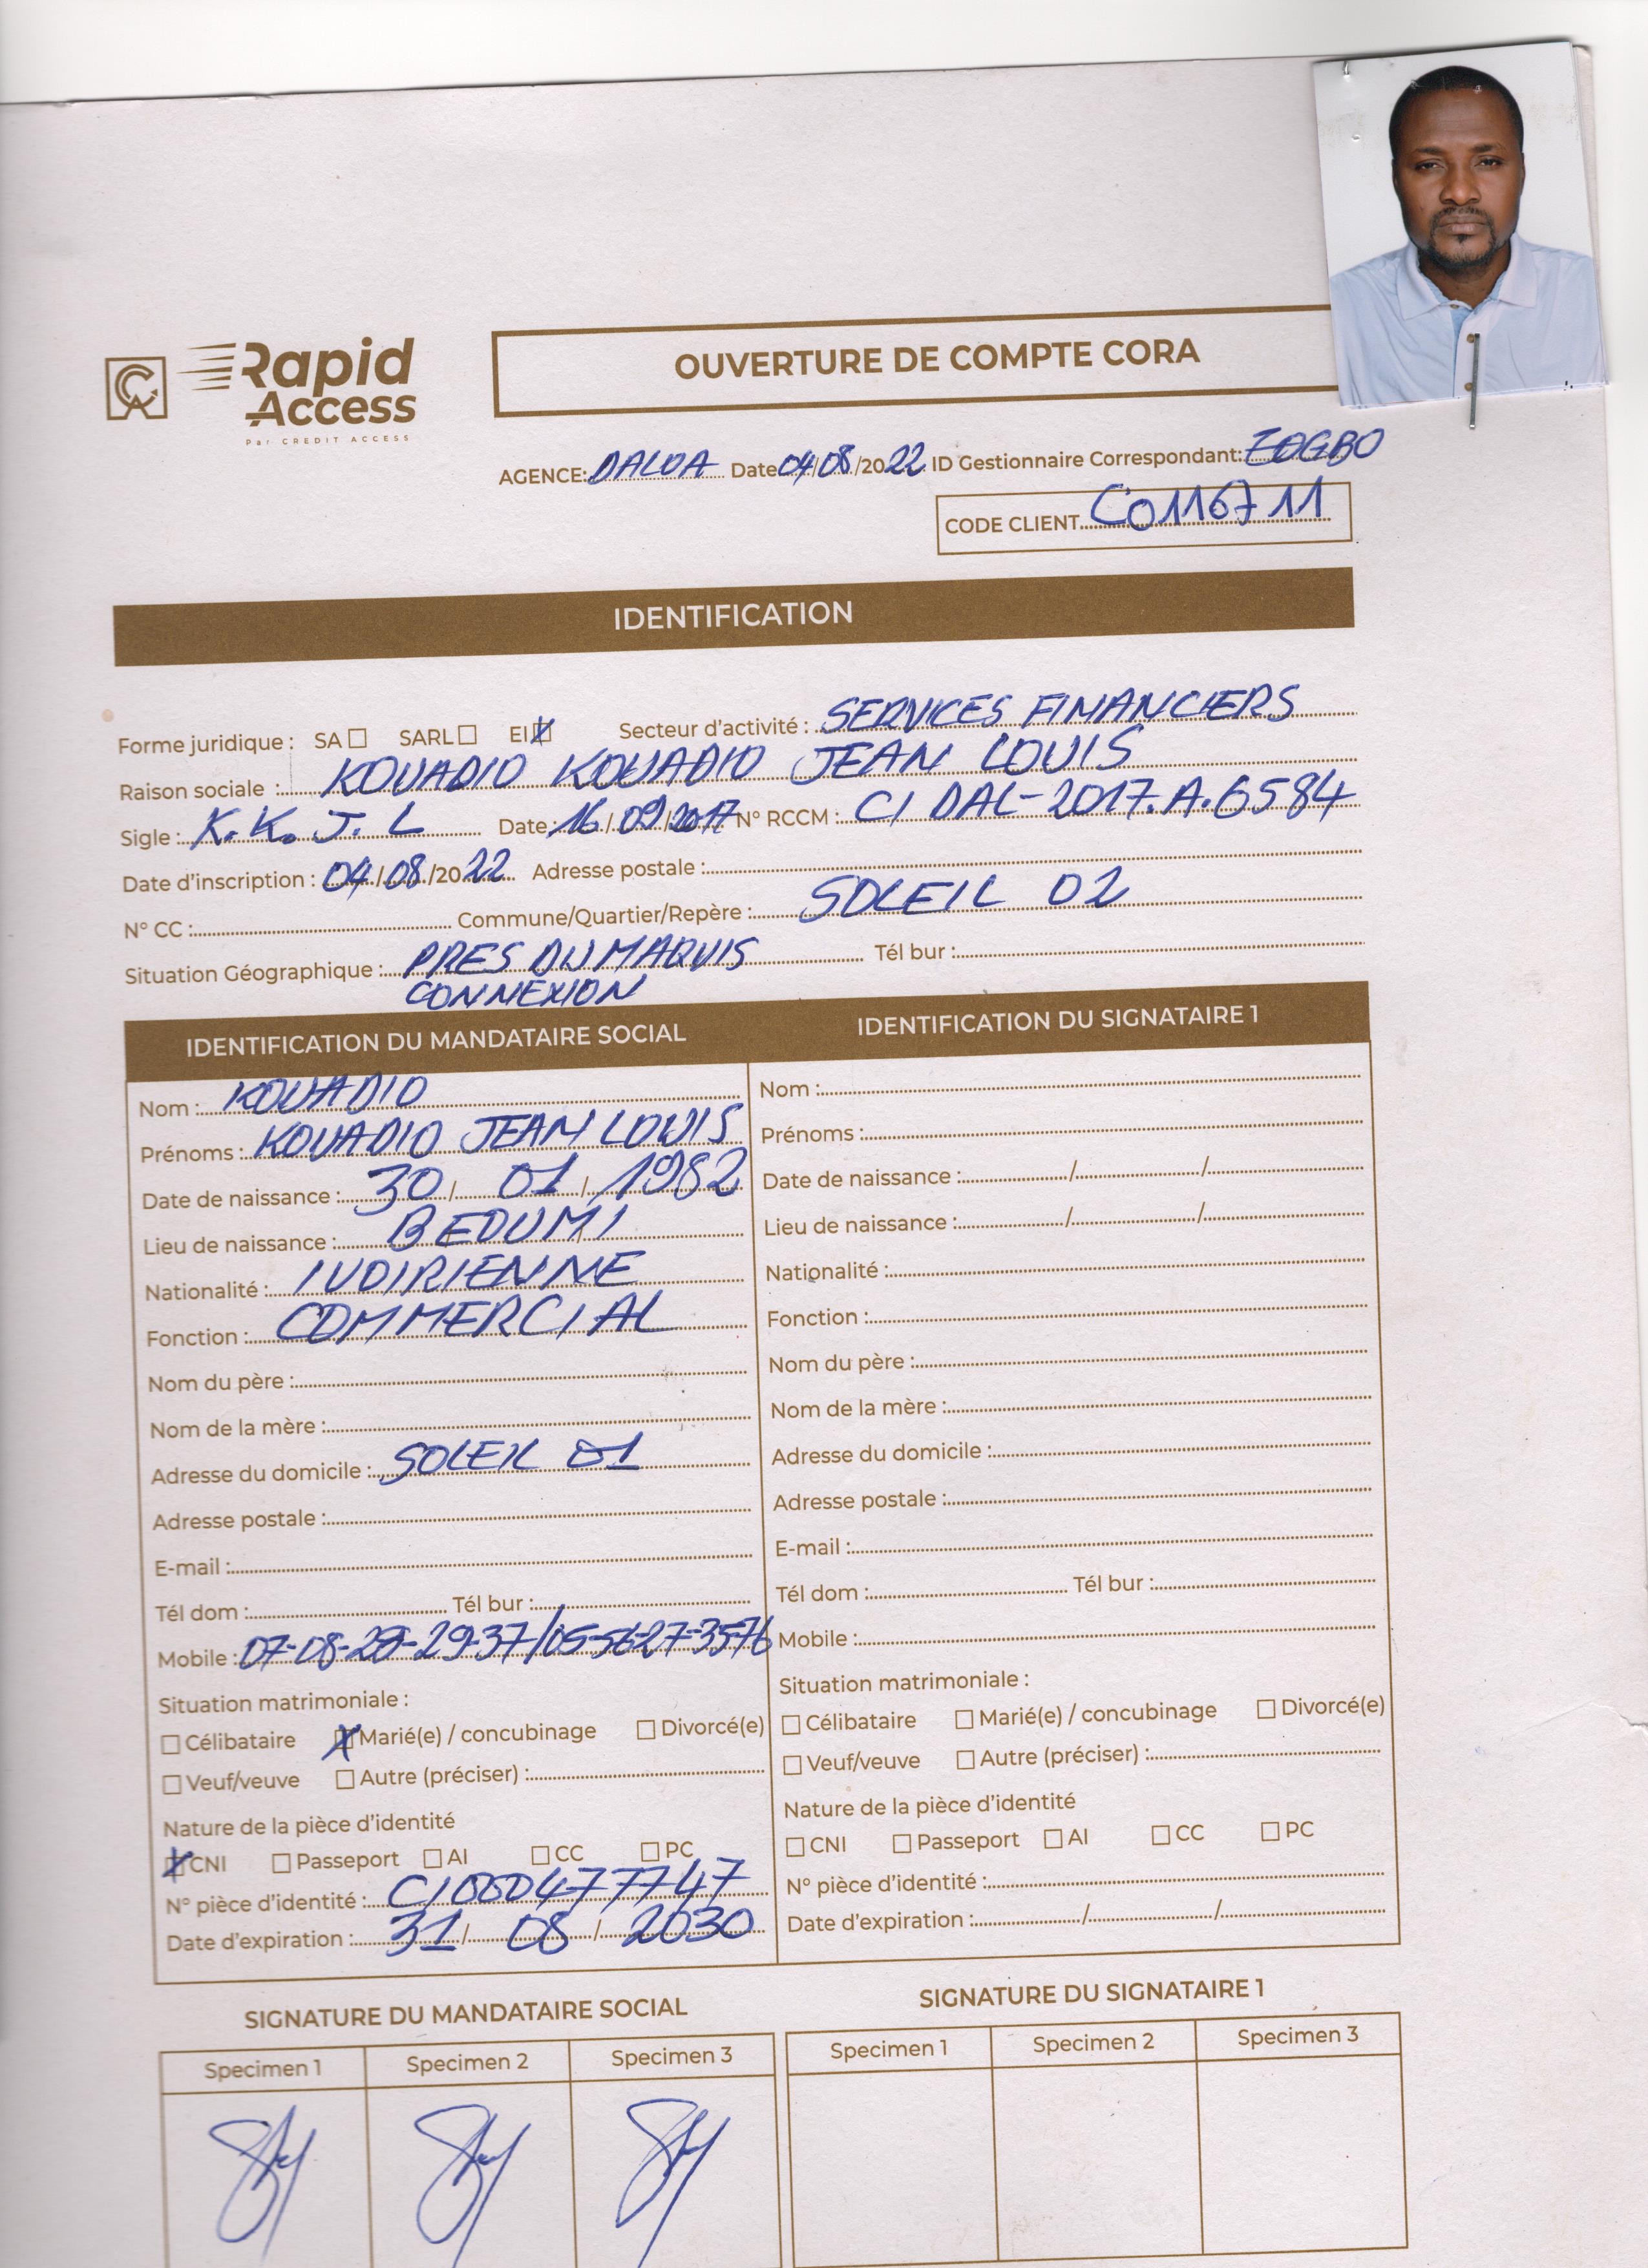 Rapid
Access
Par CREDIT ACCESS
OUVERTURE DE COMPTE CORA
AGENCE: DALOA Date 04/08/2022 ID Gestionnaire Correspondant: ZOGBO
CODE CLIENT C0116711
IDENTIFICATION
Forme juridique : SA SARL EI Secteur d'activité : SERVICES FINANCIERS
Raison sociale : KOUADIO KOUADIO JEAN LOUIS
Sigle : K. K. J. L Date : 16/09/2017 N° RCCM : CI DAL-2017.A.6584
Date d'inscription : 04/08/2022 Adresse postale :
N° CC : Commune/Quartier/Repère : SOLEIL 02
Situation Géographique : PRES DU MAQUIS Tél bur :
CONNEXION
IDENTIFICATION DU MANDATAIRE SOCIAL
Nom : KOUADIO
Prénoms : KOUADIO JEAN LOUIS
Date de naissance : 30 / 01 / 1982
Lieu de naissance : BEOUMI
Nationalité : IVOIRIENNE
Fonction : COMMERCIAL
Nom du père :
Nom de la mère :
Adresse du domicile : SOLEIL 01
Adresse postale :
E-mail :
Tél dom : Tél bur :
Mobile : 07-08-28-29-37/05-56-27-35-76
Situation matrimoniale :
Célibataire Marié(e) / concubinage Divorcé(e)
Veuf/veuve Autre (préciser) :
Nature de la pièce d'identité
CNI Passeport AI CC PC
N° pièce d'identité : CI000477747
Date d'expiration : 31 / 08 / 2030
IDENTIFICATION DU SIGNATAIRE 1
Nom :
Prénoms :
Date de naissance : / /
Lieu de naissance : / /
Nationalité :
Fonction :
Nom du père :
Nom de la mère :
Adresse du domicile :
Adresse postale :
E-mail :
Tél dom : Tél bur :
Mobile :
Situation matrimoniale :
Célibataire Marié(e) / concubinage Divorcé(e)
Veuf/veuve Autre (préciser) :
Nature de la pièce d'identité
CNI Passeport AI CC PC
N° pièce d'identité :
Date d'expiration : / /
SIGNATURE DU MANDATAIRE SOCIAL
Specimen 1 Specimen 2 Specimen 3
SIGNATURE DU SIGNATAIRE 1
Specimen 1 Specimen 2 Specimen 3